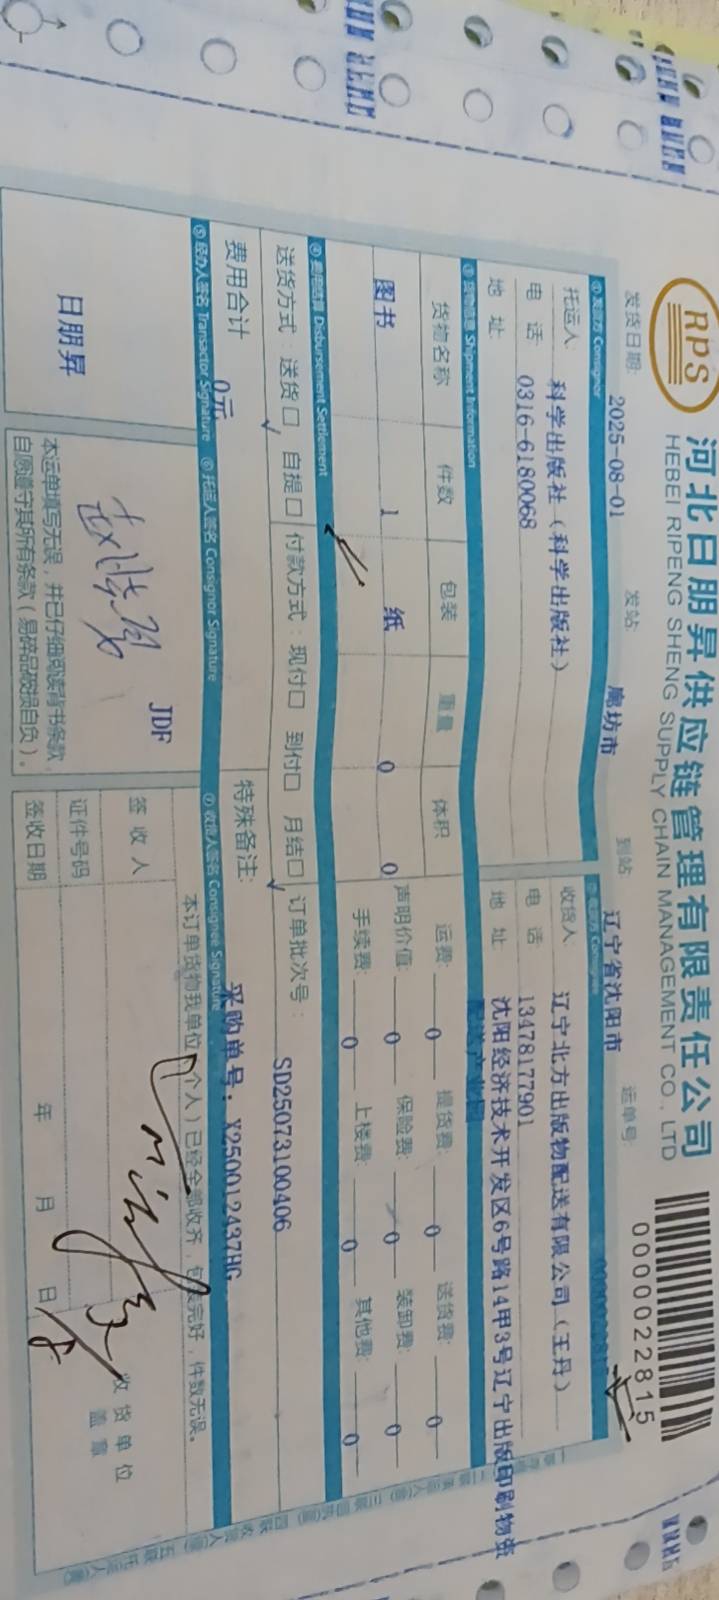 RPS
河北日朋昇供应链管理有限责任公司
HEBEI RIPENG SHENG SUPPLY CHAIN MANAGEMENT CO., LTD
0000022815
发货日期: 2025-08-01 发站: 廊坊市 到站: 辽宁省沈阳市 运单号:
① 发货方 Consignor
托运人: 科学出版社（科学出版社）
电 话: 0316-6180068
地 址:
收货人: 辽宁北方出版物配送有限公司（王丹）
电 话: 13478177901
地 址: 沈阳经济技术开发区6号路14甲3号辽宁出版印刷物资
配送产业园
③ 货物信息 Shipment Information
货物名称 件数 包装 重量 体积
图书 1 纸 0 0
运费: 0 提货费: 0 送货费: 0
声明价值: 0 保险费: 0 装卸费: 0
手续费: 0 上楼费: 0 其他费: 0
④ 费用结算 Disbursement Settlement
送货方式: 送货□ 自提□ 付款方式: 现付□ 到付□ 月结□ 订单批次号: SD25073100406
费用合计 0元 特殊备注: 采购单号: X250012437HG
⑤ 经办人签名 Transactor Signature ⑥ 托运人签名 Consignor Signature ⑦ 收货人签名 Consignee Signature
日朋昇
JDF
本运单填写无误，并已仔细阅读背书条款，
自愿遵守其所有条款（易碎品破损自负）。
本订单货物我单位（个人）已经全部收齐，包装完好，件数无误。
签 收 人
证件号码
签收日期 年 月 日
收货单位
盖 章